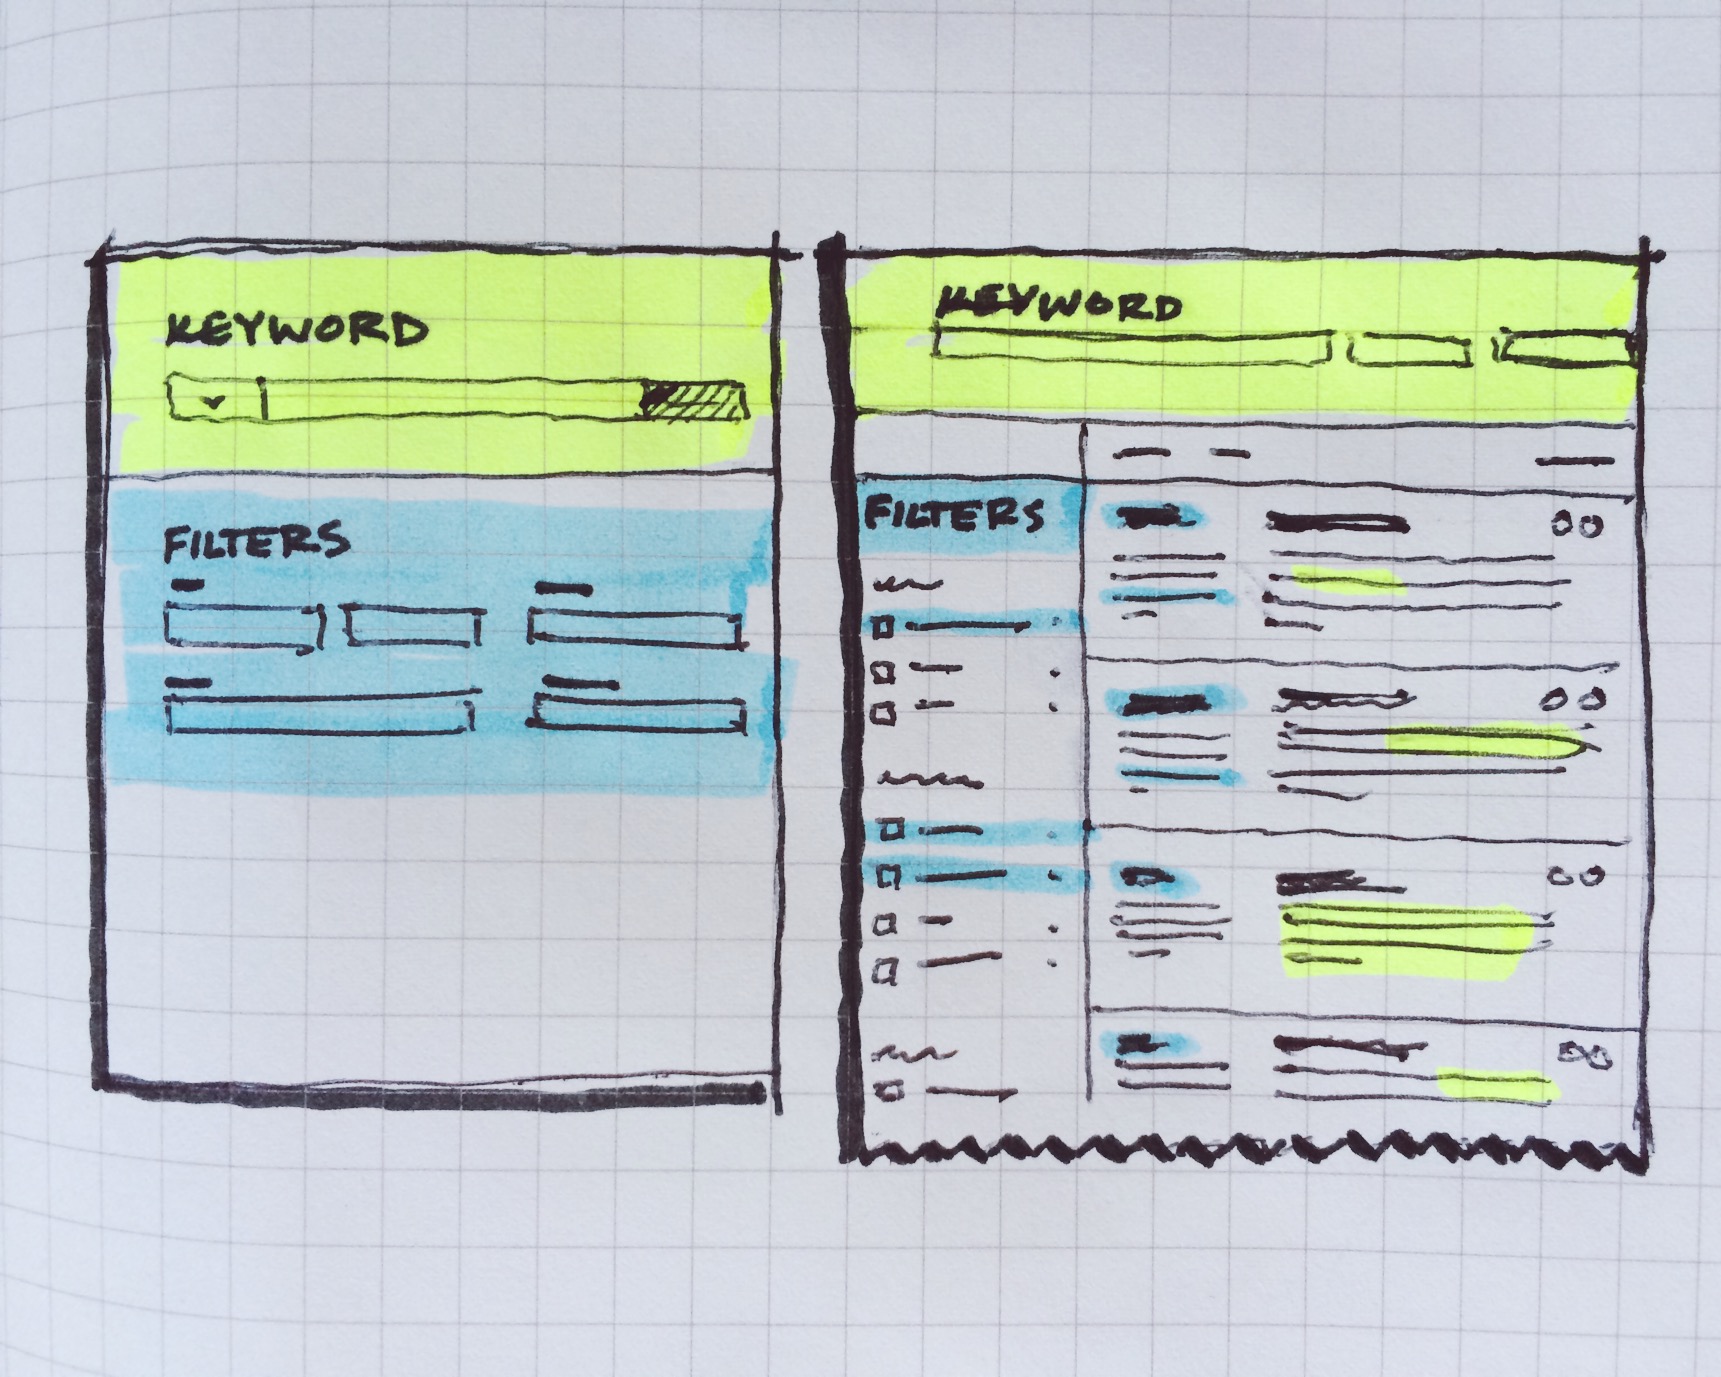 KEYWORD
FILTERS
KEYWORD
FILTERS